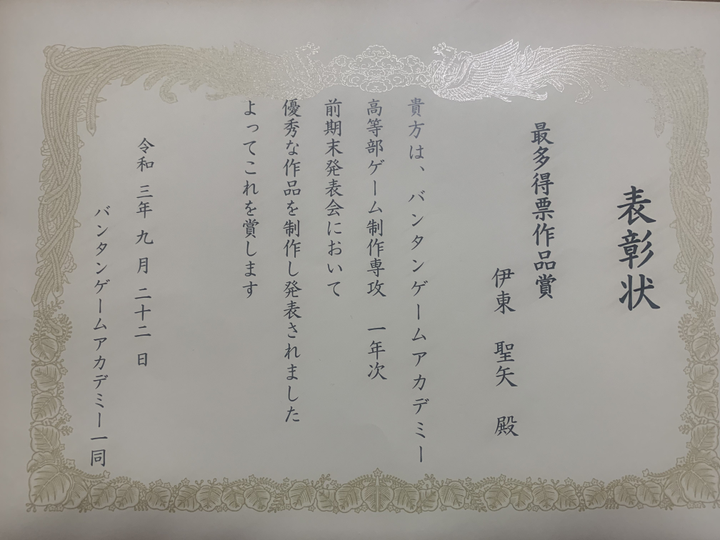 表彰状
最多得票作品賞
伊東 聖矢 殿
貴方は、バンタンゲームアカデミー
高等部ゲーム制作専攻 一年次
前期末発表会において
優秀な作品を制作し発表されました
よってこれを賞します
令和三年九月二十二日
バンタンゲームアカデミー一同